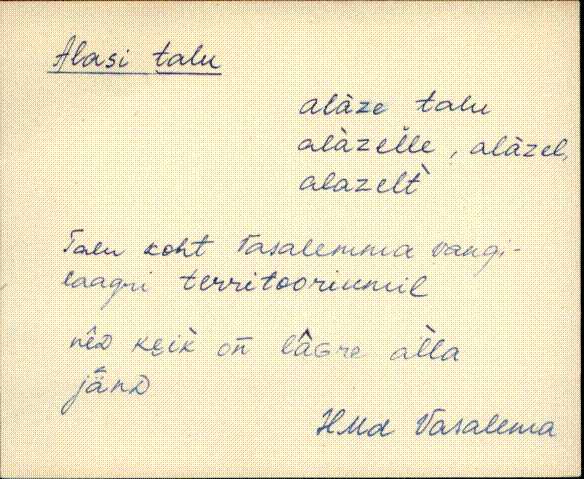 Alasi talu
alàze talu
alàzel̆le, alàzel,
alazelt̀
Talu koht Vasalemma vangi-
laagri territooriumil
nêD keik̀ on̄ lâGre àlla
jänD
HMd Vasalema